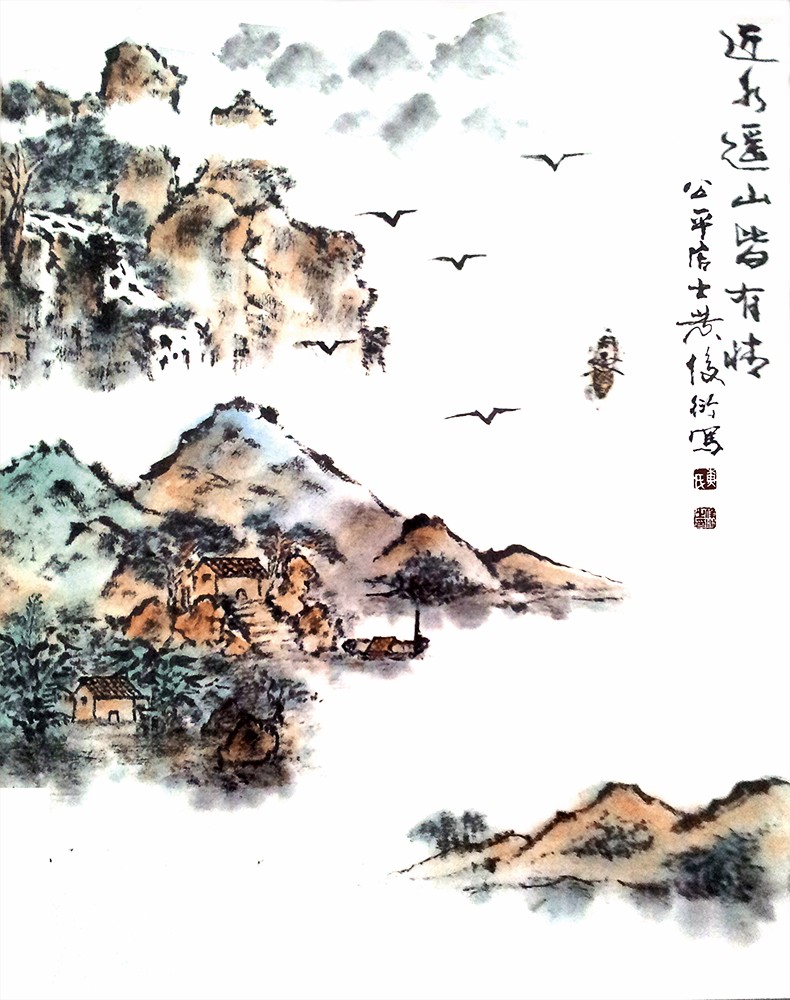 近水遥山皆有情
公平居士黄俊衍寫
黄氏